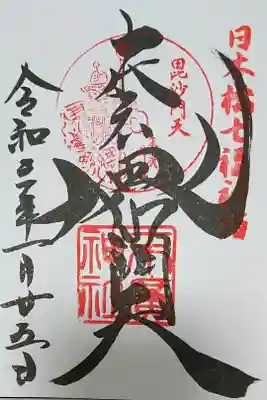 日本橋七福神詣
毘沙門天
毘沙門天
末廣神社
令和三年一月廿五日